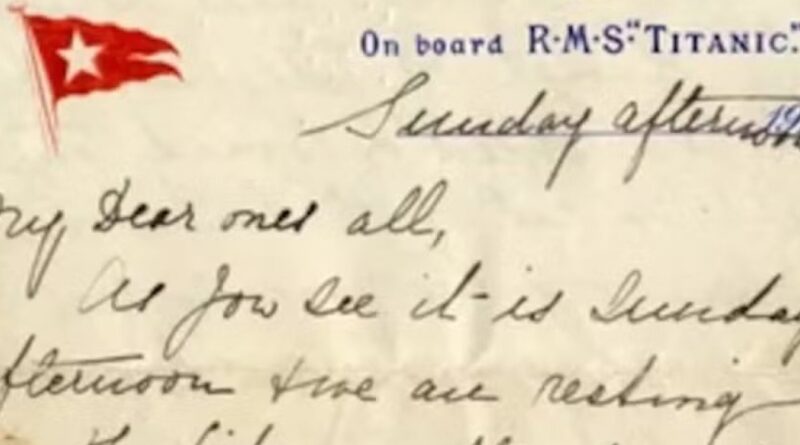 On board R·M·S·"TITANIC."
Sunday afternoon
My Dear ones all,
As you see it is Sunday
afternoon & we are resting